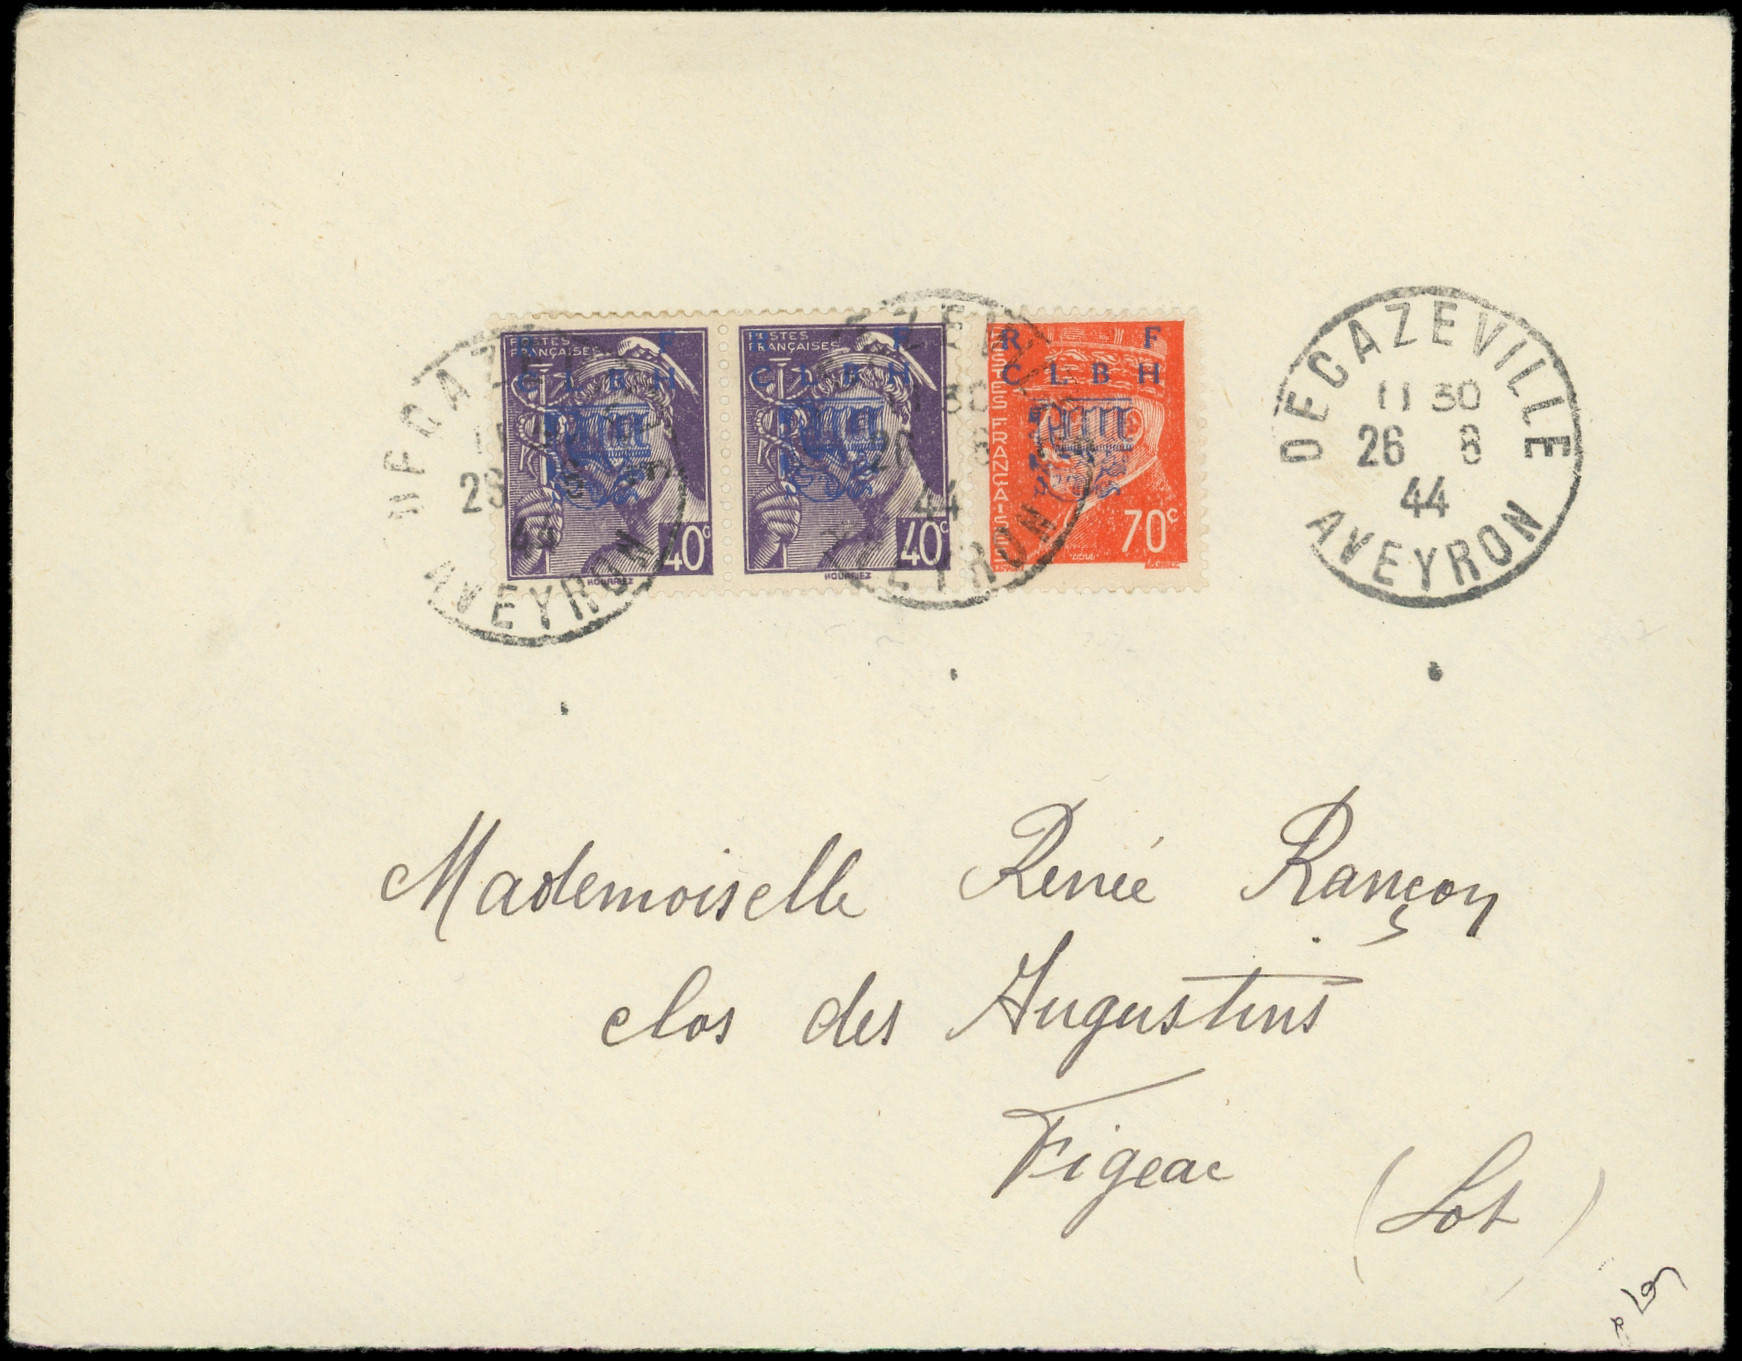 POSTES
FRANÇAISES
R F
C L B H
40c
HOURRIEZ
POSTES
FRANÇAISES
R F
C L B H
40c
HOURRIEZ
R F
C L B H
POSTES FRANÇAISES
70c
DECAZEVILLE
11 30
26 8
44
AVEYRON
DECAZEVILLE
11 30
26 8
44
AVEYRON
DECAZEVILLE
11 30
26 8
44
AVEYRON
Mademoiselle Renée Rançon
clos des Augustins
Figeac
(Lot)